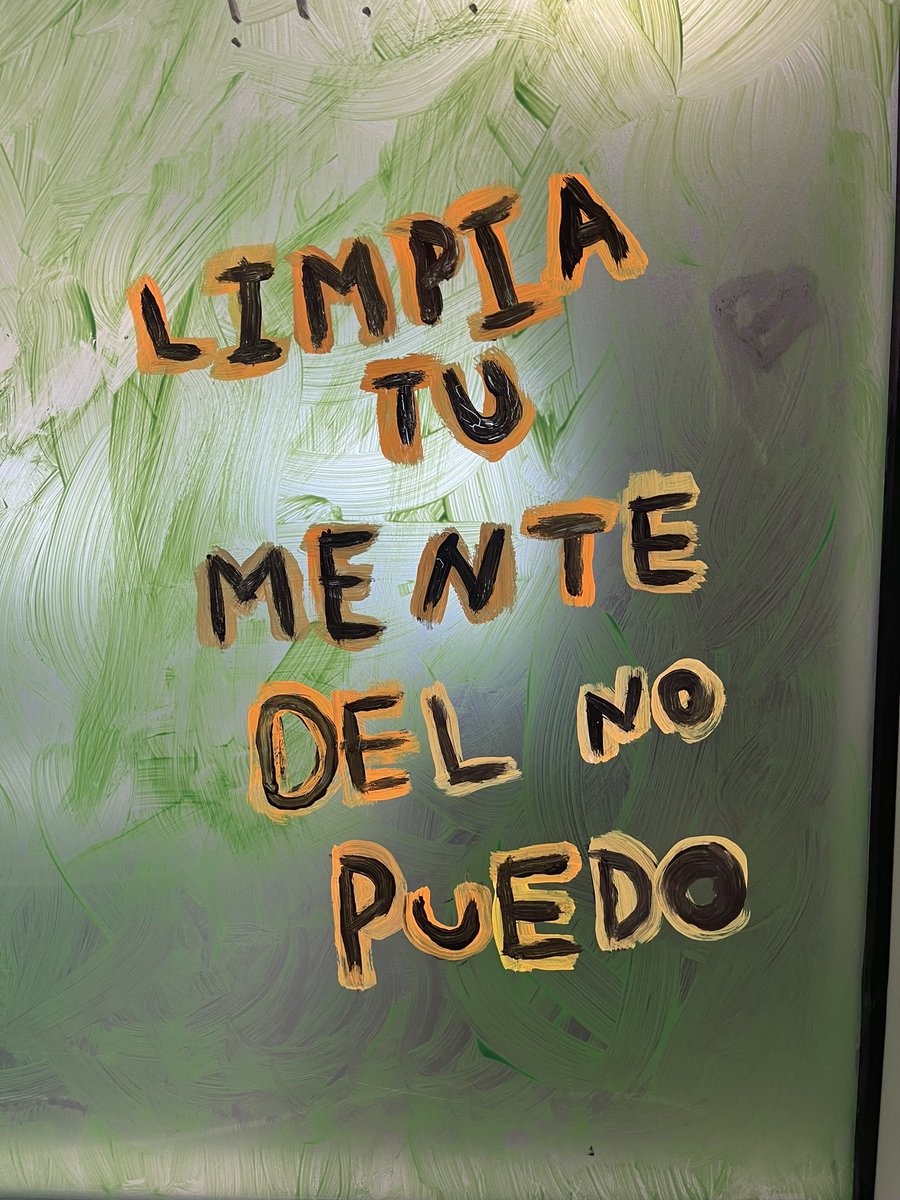 LIMPIA
TU
MENTE
DEL NO
PUEDO